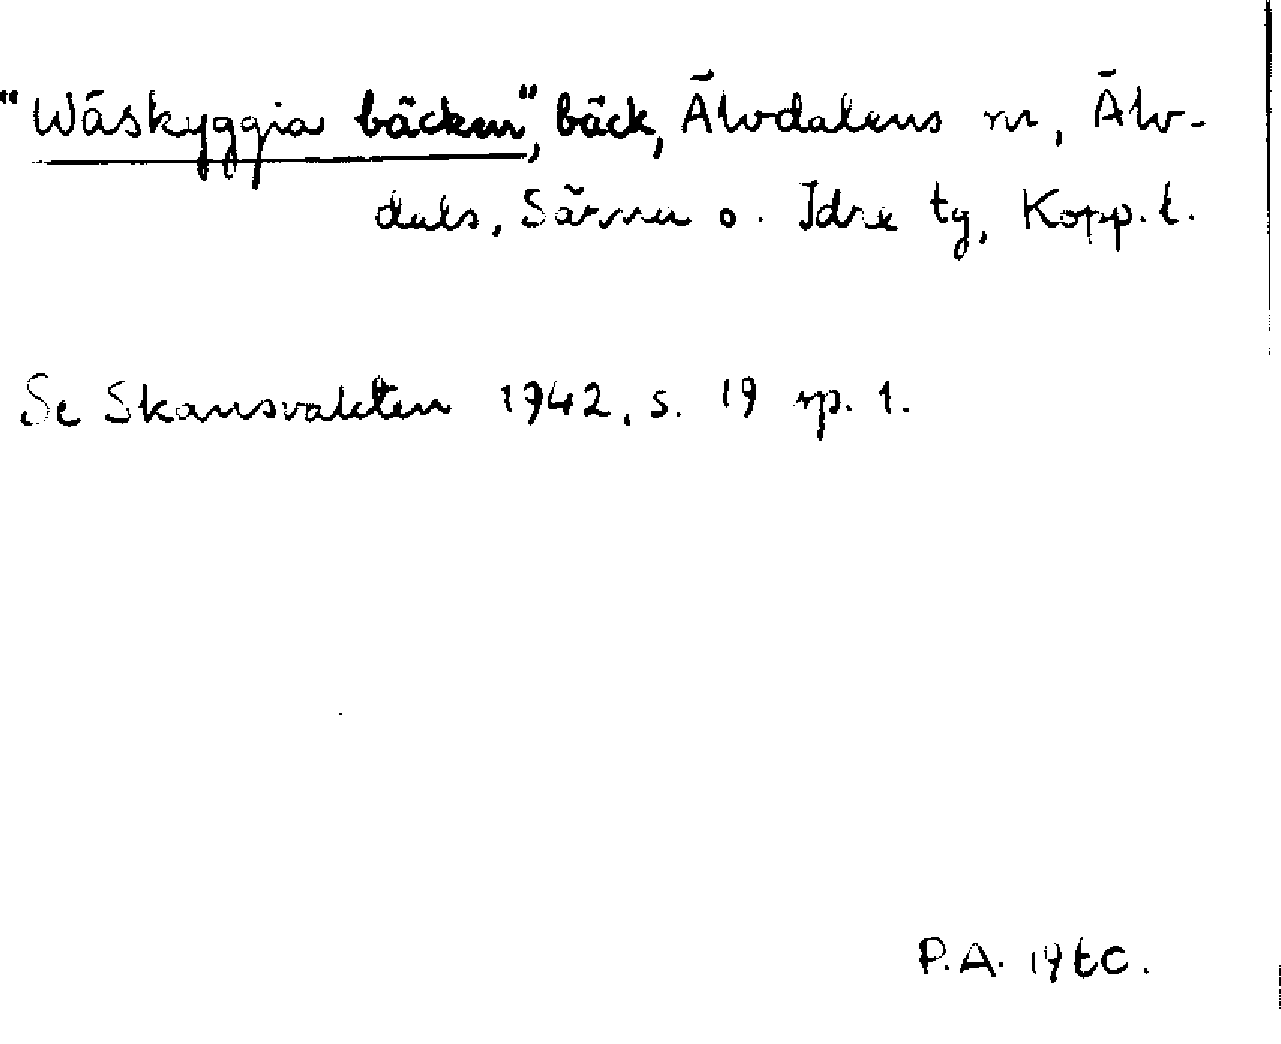 "Wåskyggia bäcken", bäck, Älvdalens sn, Älv-
dals, Särna o. Idre tg, Kopp. l.
Se Skansvakten 1942, s. 19 sp. 1.
P.A.